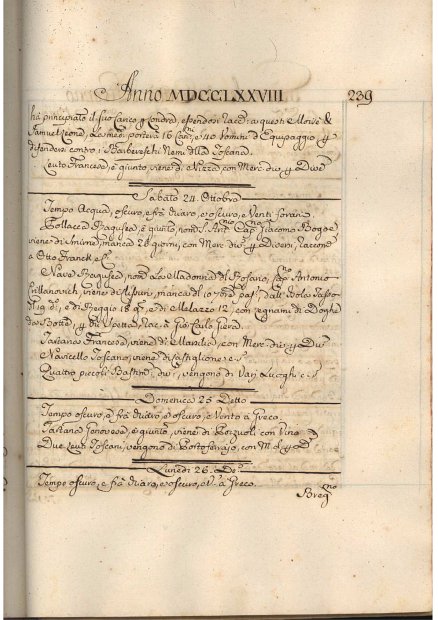 Anno MDCCLXXVIII 239
ha principiato il suo Carico p Londra, essendosi racc: a questi Moisè &
Samuel Leone, portera 16 Can:ni e 40 Uomini d'Equipaggio, p
difendersi contro i Barbereschi Nemi della Toscana.
Leuto Francese, è giunto, viene di Nizza, con Merc: div: p Div:
Sabato 24. Ottobre
Tempo Acqua, oscuro, e frà chiaro, e oscuro, e Venti forani
Pollacca Ragusea, è giunto, nom: S. Ant:no Cap:no Giacomo
viene di Smirne, manca 28 giorni, con Merc: div: p Diversi, raccom:
a Otto Franck e C.
Nave Ragusea, nom: La Madonna del Rosario, Cap:no Antonio
viene di manca dal 10
di g: e di Reggio 18 g: e di Melazzo 12, con Legnami di Doghe
da Botte, p di Venetta, Rac: a Gio: Carlo
Tartana Francese, viene di Marsilia, con Merc: div: p Div:
Navicello Toscano, viene di Castiglione e S.
Quattro piccoli Bastim: div: vengono di Varj Luoghi e S.
Domenica 25 Detto
Tempo oscuro, e frà chiaro, e oscuro, e Vento a Greco.
Tartana Genovese, è giunto, viene di Pozzuoli con Vino
Due Leuti Toscani, vengono di Portoferrajo, con M. d. p D.
Lunedi 26. D:o
Tempo oscuro, e frà chiaro, e oscuro, e V: a Greco.
Breg:no